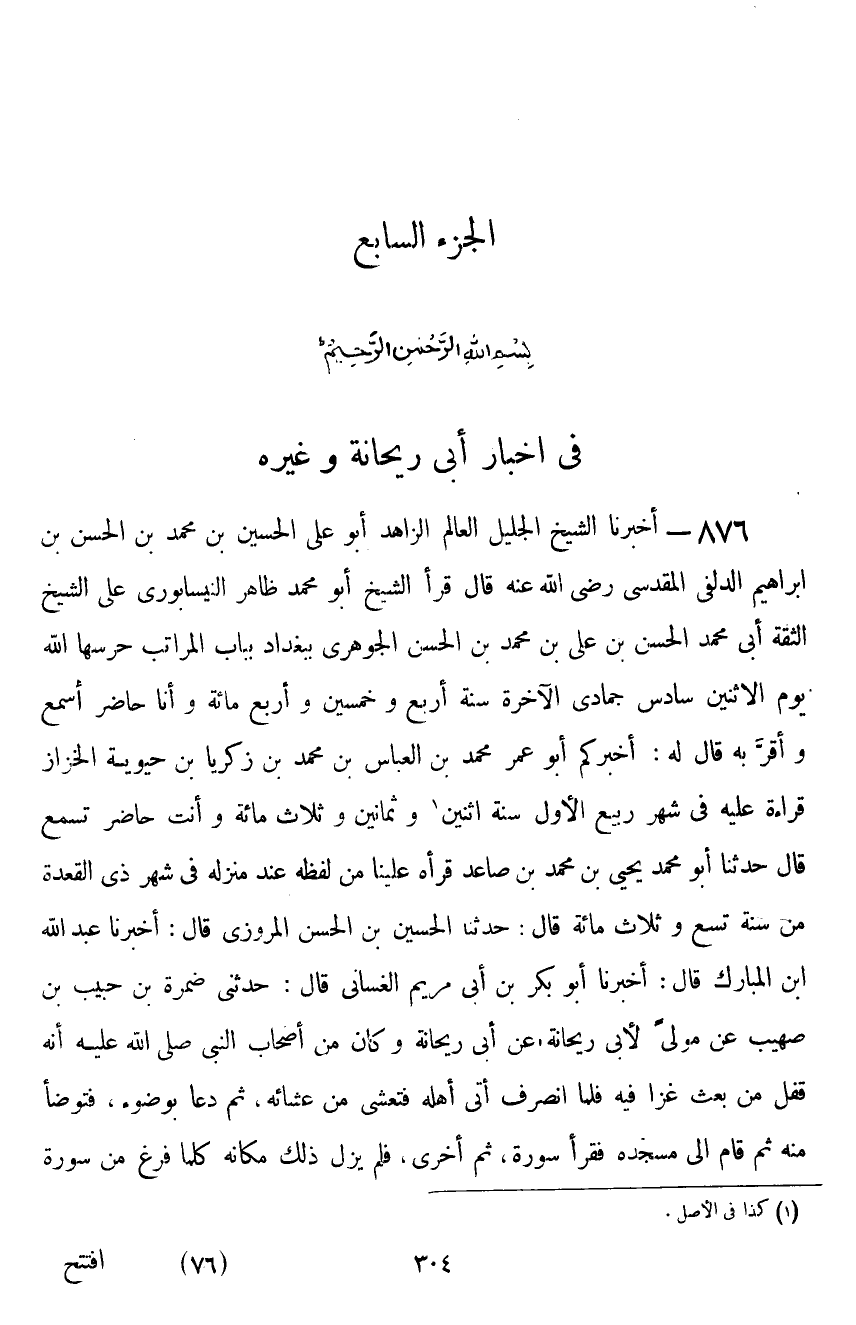 الجزء السابع
بِسْمِ اللهِ الرَّحْمٰنِ الرَّحِيْمِ
فى اخبار أبى ريحانة و غيره
٨٧٦ – أخبرنا الشيخ الجليل العالم الزاهد أبو على الحسين بن محمد بن الحسن بن
ابراهيم الدلفى المقدسى رضى الله عنه قال قرأ الشيخ أبو محمد ظاهر النيسابورى على الشيخ
الثقة أبى محمد الحسن بن على بن محمد بن الحسن الجوهرى ببغداد بباب المراتب حرسها الله
يوم الاثنين سادس جمادى الآخرة سنة أربع و خمسين و أربع مائة و أنا حاضر أسمع
و أقرَّ به قال له : أخبركم أبو عمر محمد بن العباس بن محمد بن زكريا بن حيوية الخزاز
قراءة عليه فى شهر ربيع الأول سنة اثنين١ و ثمانين و ثلاث مائة و أنت حاضر تسمع
قال حدثنا أبو محمد يحيى بن محمد بن صاعد قرأه علينا من لفظه عند منزله فى شهر ذى القعدة
من سنة تسع و ثلاث مائة قال : حدثنا الحسين بن الحسن المروزى قال : أخبرنا عبد الله
ابن المبارك قال : أخبرنا أبو بكر بن أبى مريم الغسانى قال : حدثنى ضمرة بن حبيب بن
صهيب عن مولىً لأبى ريحانة، عن أبى ريحانة و كان من أصحاب النبى صلى الله عليه أنه
قفل من بعث غزا فيه فلما انصرف أتى أهله فتعشى من عشائه، ثم دعا بوضوء، فتوضأ
منه ثم قام الى مسجده فقرأ سورة، ثم أخرى، فلم يزل ذلك مكانه كلما فرغ من سورة
(١) كذا فى الأصل .
٣٠٤ (٧٦) افتتح